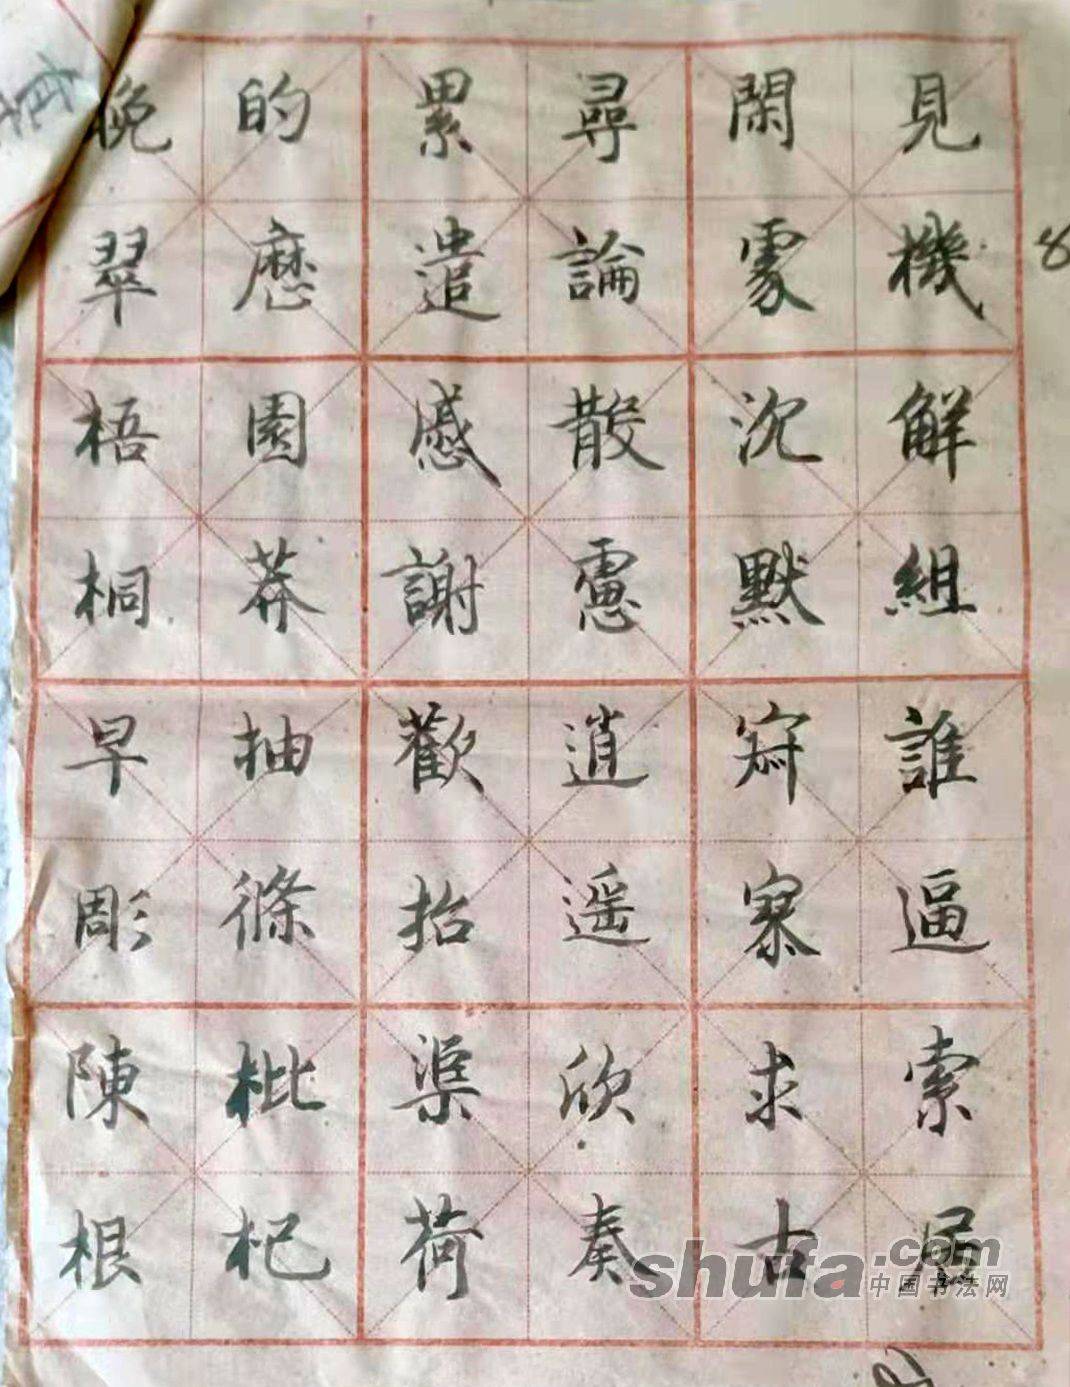 見機解組誰逼索居
閑處沉默寂寥求古
尋論散慮逍遥欣奏
累遣慼謝歡招渠荷
的歷園莽抽條枇杷
晚翠梧桐早彫陳根
8
shufa.com
中国书法网